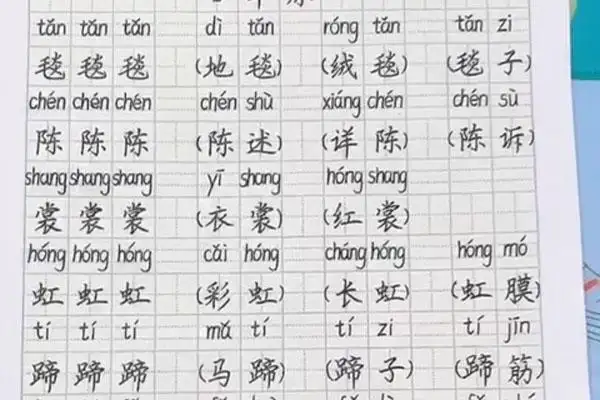 tǎn tǎn tǎn dì tǎn róng tǎn tǎn zi
毯 毯 毯 (地 毯) (绒 毯) (毯 子)
chén chén chén chén shù xiáng chén chén sù
陈 陈 陈 (陈 述) (详 陈) (陈 诉)
shang shang shang yī shang hóng shang
裳 裳 裳 (衣 裳) (红 裳)
hóng hóng hóng cǎi hóng cháng hóng hóng mó
虹 虹 虹 (彩 虹) (长 虹) (虹 膜)
tí tí tí mǎ tí tí zi tí jīn
蹄 蹄 蹄 (马 蹄) (蹄 子) (蹄 筋)